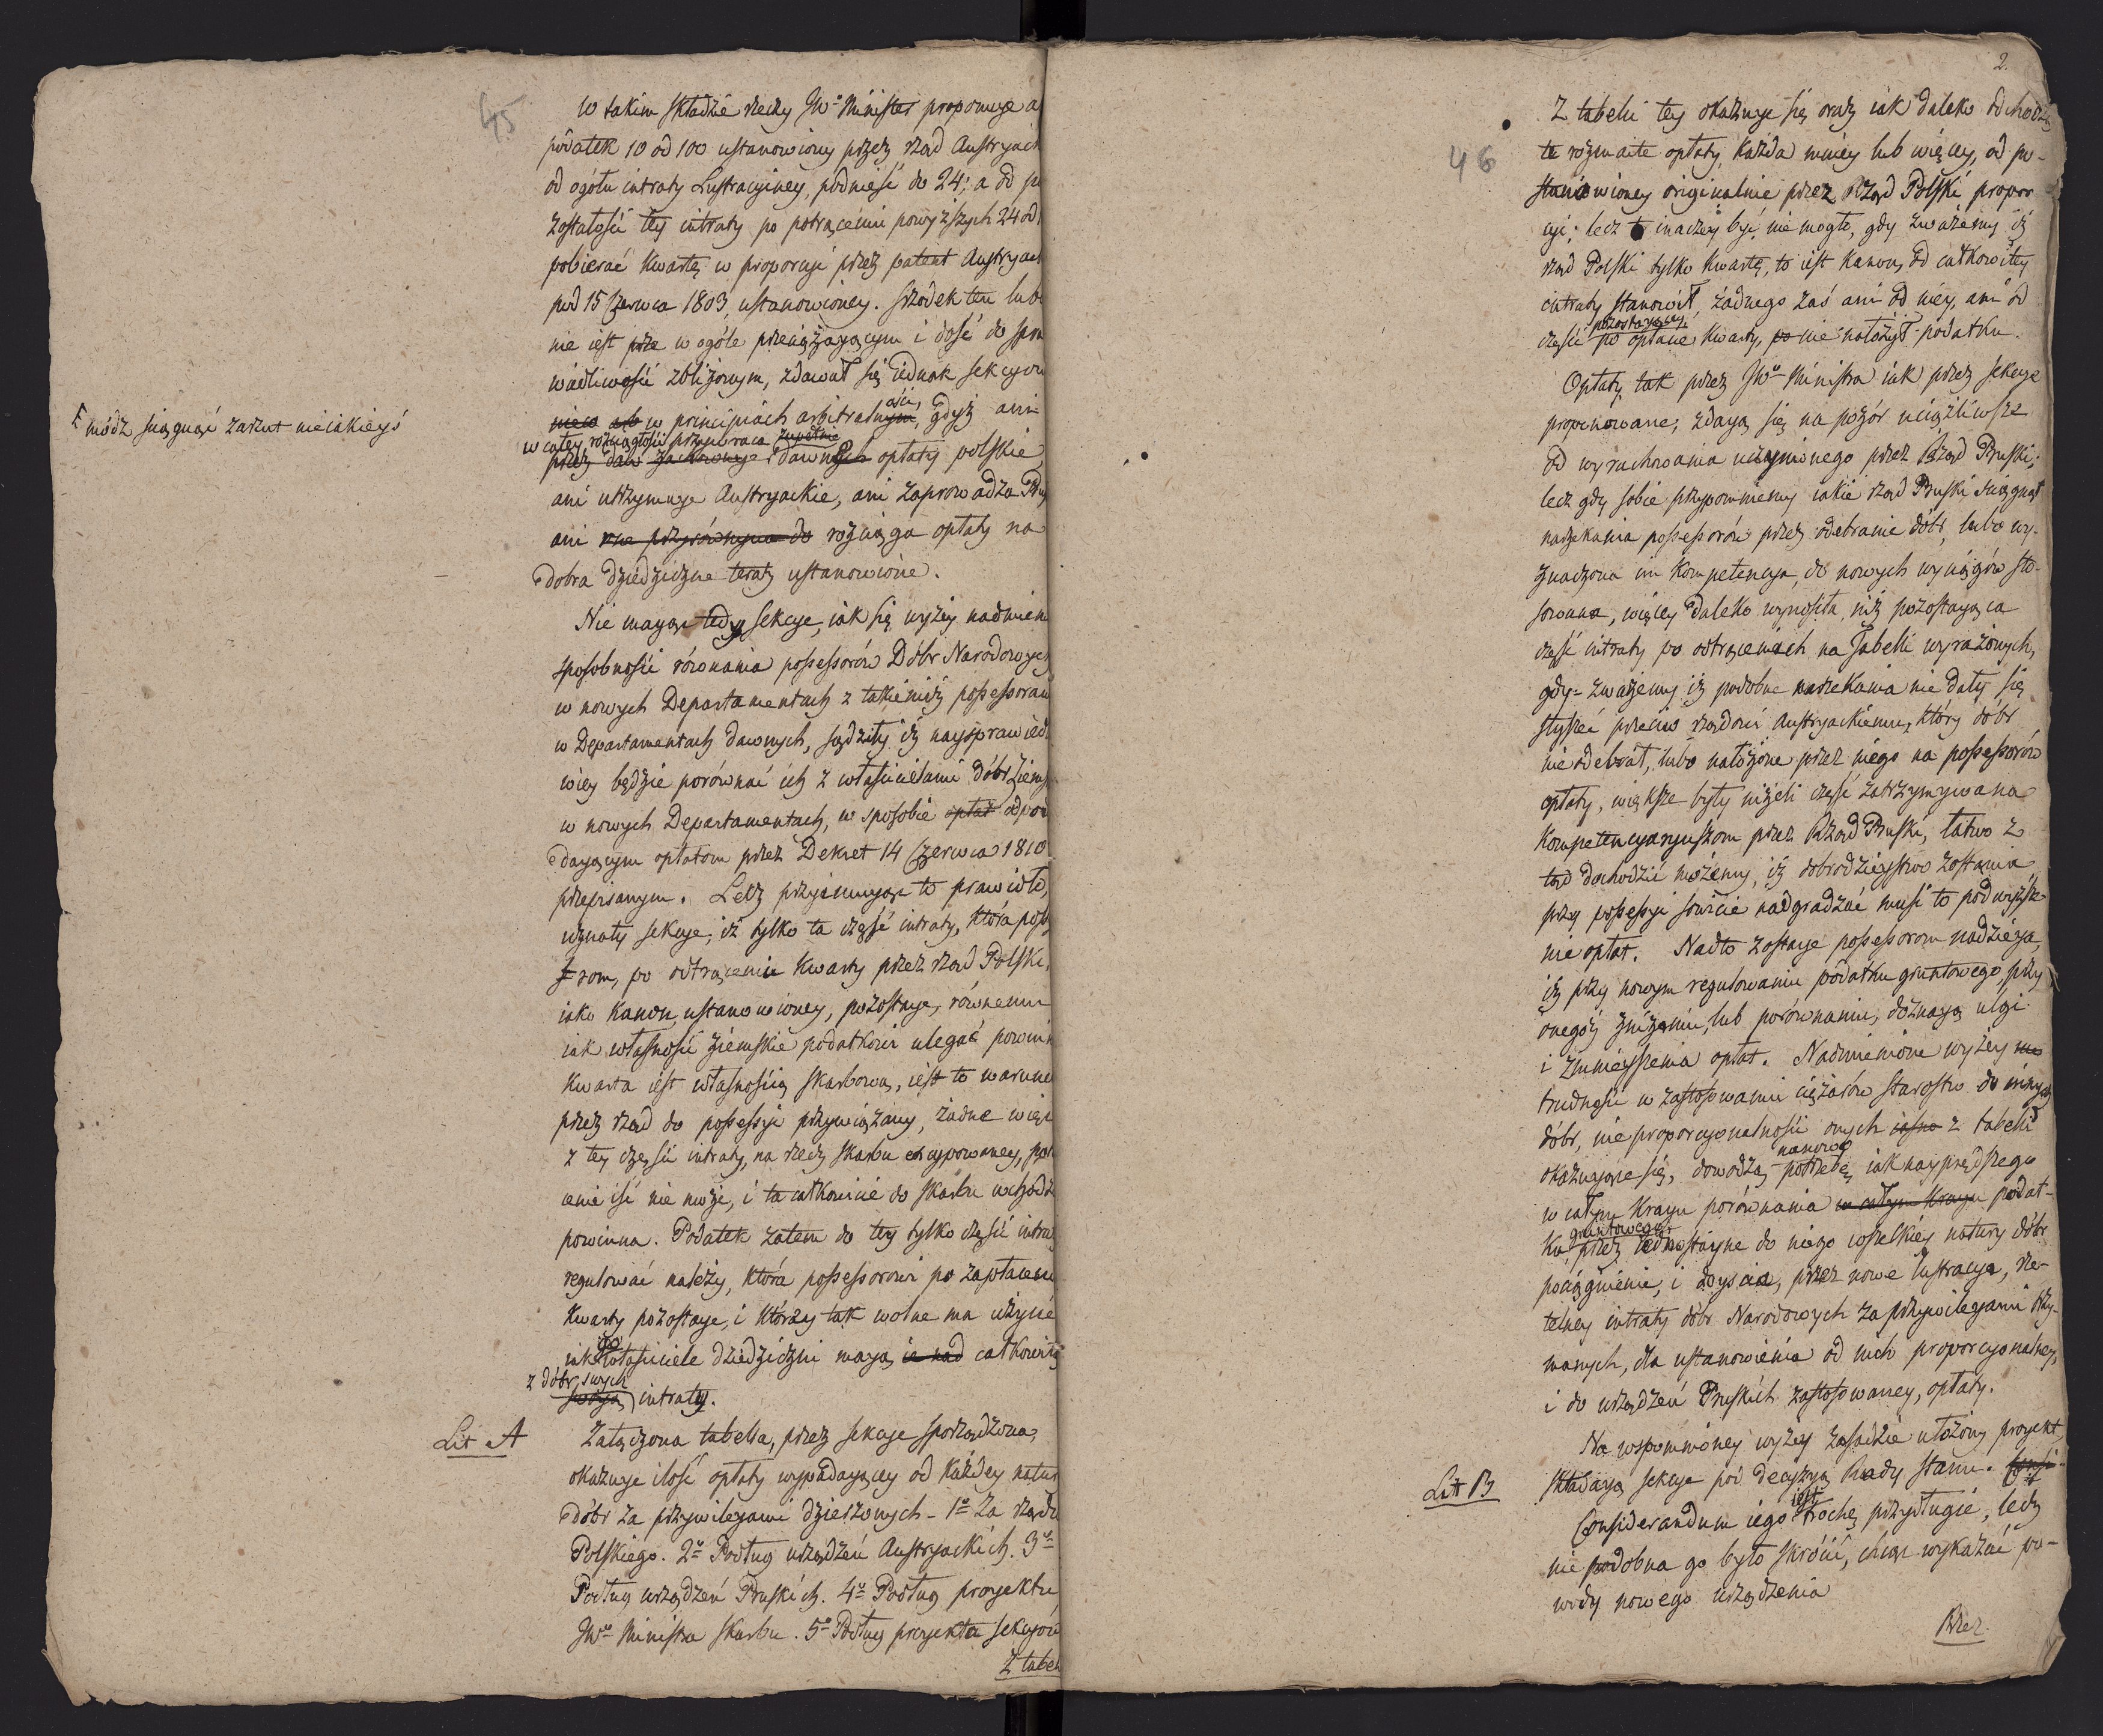 45
W takim składzie rzeczy JWo Minister proponuje a
podatek 10 od 100 ustanowiony przez rząd Austryack
od ogółu intraty Lustracyiney, podnieść do 24; a od po
zostałości tey intraty po potrąceniu powyższych 24 od
pobierać kwartę w proporcyi przez patent Austryack
pod 15 Czerwca 1803, ustanowioney. Srzodek ten lubo
nie iest prze w ogóle przeciążaiącym i dość do spra
wiedliwości zbliżonym, zdawał się iednak sekcyom
[ módz ściągnąć zarzut nieiakieyś
w principiach arbitralności, gdyż ani
w całey rozciągłości przywraca zupełnie
przez dawnych opłaty polskie
ani utrzymuye Austryackie, ani zaprowadza Pru
ani przyrównywa do rozciąga opłaty na
dobra dziedziczne teraz ustanowione.
Nie maiąc tedy sekcye, iak się wyżey nadmieni
sposobności równania possessorów Dóbr Narodowych
w nowych Departamentach z takiemiż possessoram
w Departamentach dawnych, sądziły iż nayspraw iedl
wiey będzie porównać ich z właścicielami dóbr ziems
w nowych Departamentach, w sposobie opłat odpow
daiącym opłatom przez Dekret 14 Czerwca 1810
przepisanym. Lecz przyimuiąc to prawidło,
uznały sekcye, iż tylko ta część intraty, która poss
rom, po odtrąceniu kwarty przez rząd Polski,
iako kanon, ustanowioney, pozostaye, równemu
iak własności ziemskie podatkowi ulegać powin
Kwarta iest własnością skarbową, iest to warune
przez rząd do possessyi przywiązany, żadne więc
z tey części intraty, na rzecz skarbu excypowaney, potr
cenie iść nie może, i ta całkowicie do skarbu wchodzi
powinna. Podatek zatem do tey tylko części intra
regulować należy, która possessorowi po zapłaceniu
Kwarty pozostaye, i którzy tak wolne ma użycie
iakie właściciele dziedziczni maią ie nad całkowitey
z dóbr swych
swoią intraty.
Lit A
Załączona tabella, przez sekcye sporządzona,
okazuye ilość opłaty wypadaiącey od każdey natur
dóbr za przywileyami dzierżonych - 1o Za rządu
Polskiego. 2o Podług urządzeń Austryackich. 3o
Podług urządzeń Pruskich. 4o Podług proyektu
JWo Ministra Skarbu. 5o Podług proyektu sekcyów
Z tabel
2.
46
Z tabelli tey okazuye się oraz iak daleko odchodzą
te rozmaite opłaty każda mniey lub więcey, od po-
stanowioney originalnie przez Rząd Polski propor
cyi; lecz inaczey być nie mogło, gdy zważemy iż
rząd Polski tylko kwartę, to iest kanon, od całkowitey
intraty stanowił, żadnego zaś ani od niey, ani od
pozostaiącey
części po opłacie kwarty, po nie nałożył podatku.
Opłaty, tak przez JWo Ministra iak przez sekcye
proponowane, zdaią się na pozór uciążliwsze
od wyrachowania uczynionego przez Rząd Pruski;
lecz gdy sobie przypomniemy iakie rząd Pruski ściągnął
narzekania possessorów przez odebranie dóbr, lubo wy-
znaczona im kompetencya, do nowych wyciągów sto-
sowana, więcey daleko wynosiła, niż pozostaiąca
część intraty po odtrąceniach na Tabelli wyrażonych,
gdy zważemy iż podobne narzekania nie dały się
słyszeć przeciw rządowi Austryackiemu, który dóbr
nie odebrał, lubo nałożone przez niego na possessorów
opłaty, większe były niżeli część zatrzymywana
kompetencyaryuszom przez Rząd Pruski, łatwo z
tąd dochodzić możemy, iż dobrodzieystwo zostania
przy possessyi sowicie nadgradzać musi to podwyższe
nie opłat. Nadto zostaye possessorom nadzieia,
iż przy nowym regulowaniu podatku gruntowego, przy
onegóż zniżeniu, lub porównaniu, doznaią ulgi
i zmnieyszenia opłat. Nadmienione wyżey
trudności w zastosowaniu ciężarów starostw do innych
dóbr, nieproporcyonalności onych iasno z tabelli
okazuiące się, dowodzą nanowo potrzebę iak nayprędszego
w całym kraiu porównania w całym kraiu podat-
gruntowego
ku przez iednostayne do niego wszelkiey natury dóbr
pociągnienie, i doyścia, przez nowe lustracye, rze-
telney intraty dóbr Narodowych za przywileyami trzy-
manych, dla ustanowienia od nich proporcyonalney,
i do urządzeń Pruskich zastosowaney, opłaty.
Na wspomnioney wyżey zasadzie ułożony proyekt,
Lit B
składaią sekcye pod decyzyą Rady Stanu. Consi-
Considerandum iego iest trochę przydługie, lecz
nie podobna go było skrócić, chcąc wykazać po-
wody nowego urządzenia
Przez